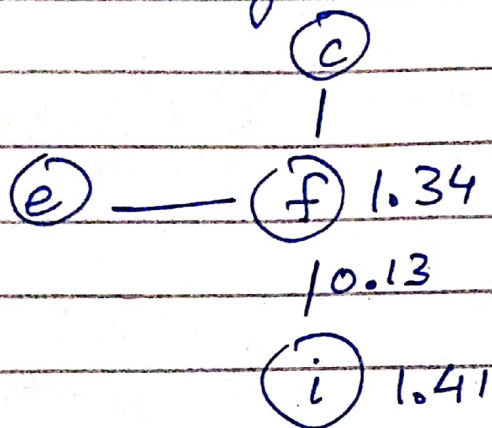 c
e f 1.34
0.13
i 1.41